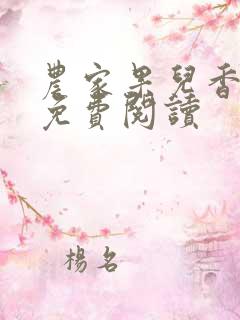 農家果兒香
免費閱讀
楊名